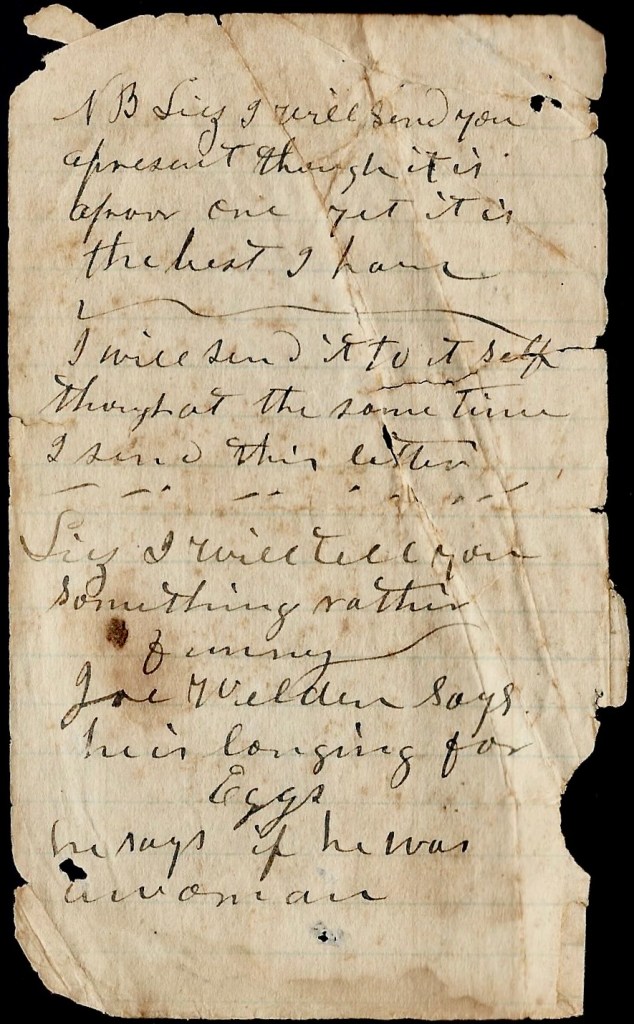 NB Liz I will send you
apresent though it is
apoor one yet it is
the best I have
I will send it to it self
though at the same time
I send this letter
Liz I will tell you
something rather
funny
Joe Welden says
he is longing for
Eggs
he says if he was
a woman